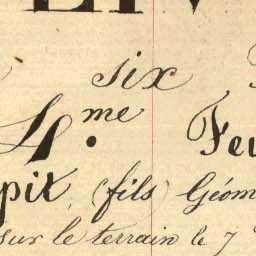 six
4.me Feu
pit, (fils) Géom
sur le terrain le 7